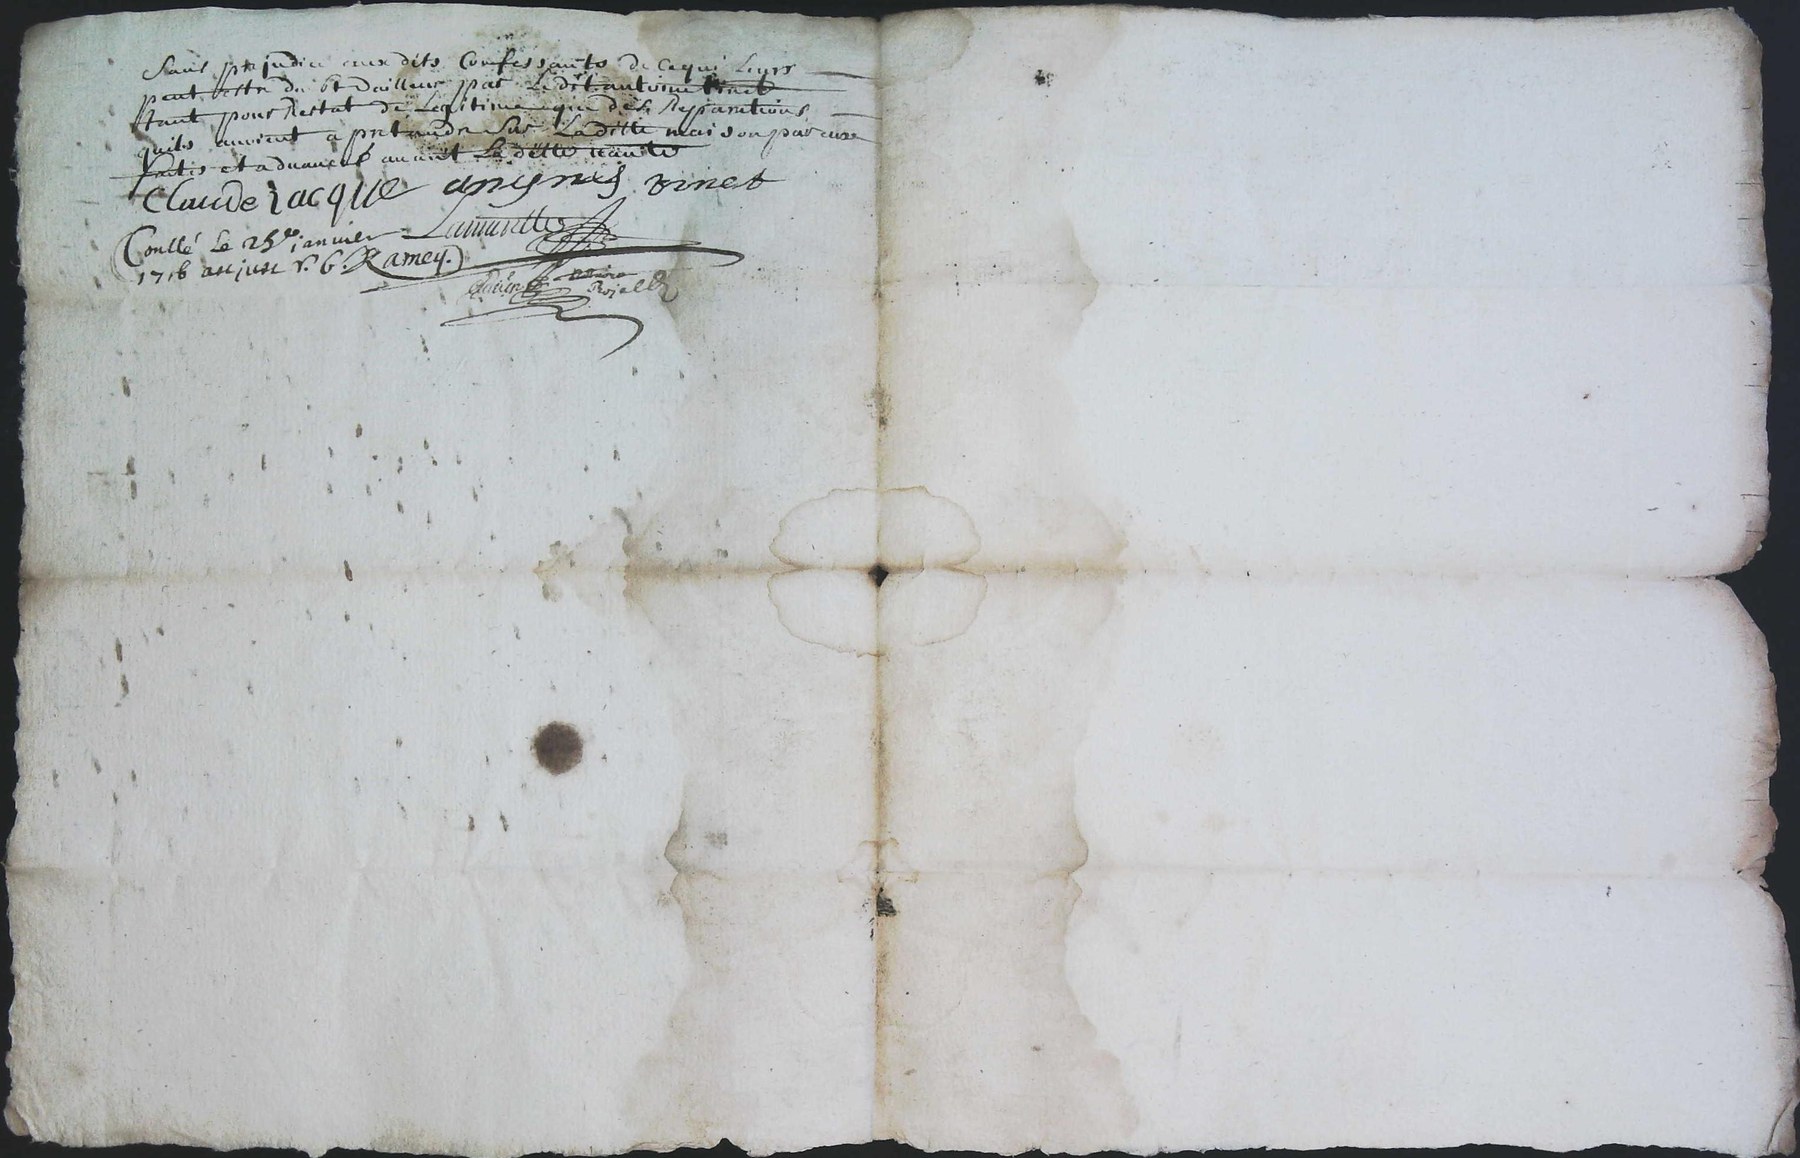 Sans prejudice aux dits Confessants de ce qui Leurs
peut estre du et dailleur par Le dit antoine vinet
tant pour Restat de Legitime que des Reparations
quils auoient a pretendre sur La ditte maison par eux
faites et aduancés auant La ditte vante
Claude Jacque vinet
Conllé Le 25e janvier Lamurette
1716 Ramey.
Rojalle